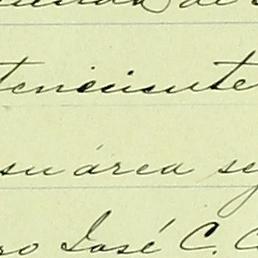 de
teneciente
su área se
ro José C. C